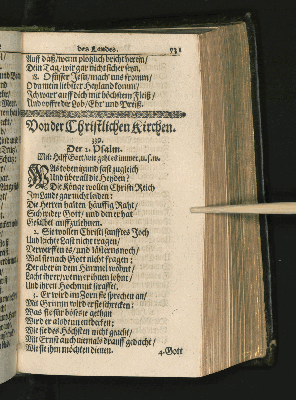 des Landes. 731
Auff daß/ wenn plötzlich bricht herein/
Dein Tag/ wir gar nicht sicher seyn.
8. O süsser Jesu/ mach uns fromm/
O du mein liebster Heyland komm/
Ich wart auff dich mit höchstem Fleiß/
Und opffre dir Lob/ Ehr und Preiß.
Von der Christlichen Kirchen.
Der 2. Psalm.
Mel: Hilff Gott/ wie geht es immer/ u.s.w.
WAs toben und fast zugleich
Und überall die Heyden?
Die Könge wollen Christi Reich
Im Lande gar nicht leiden:
Die Herren halten häuffig Raht/
Sich wider Gott/ und den er hat
Gesalbet auffzulehnen.
2. Sie wollen Christi sanfftes Joch
Und leichte Last nicht tragen/
Verwerffen es/ und lästerns noch/
Weil sie nach Gott nicht fragen:
Der aber in dem Himmel wohnt/
Lacht ihrer/ wenn er ihnen lohnt/
Und ihren Hochmut straffet.
3. Er wird im Zorn sie sprechen an/
Mit Grimm wird er sie schrecken:
Was sie für böses je gethan
Wird er alsdenn entdecken;
Wie sie des Höchsten nicht geacht/
Mit Ernst auch niemals drauff gedacht/
Wie sie ihm möchten dienen.
4. Gott